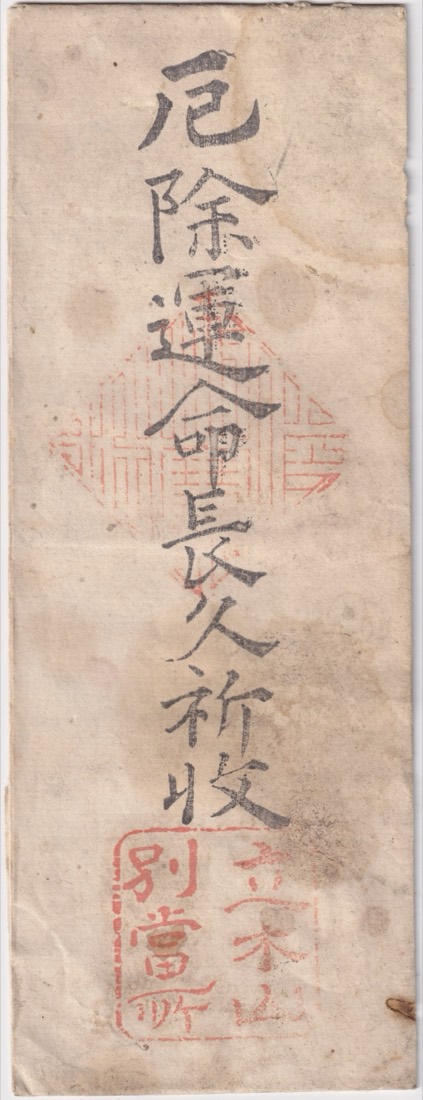 厄除運命長久祈收
立木山
別當所